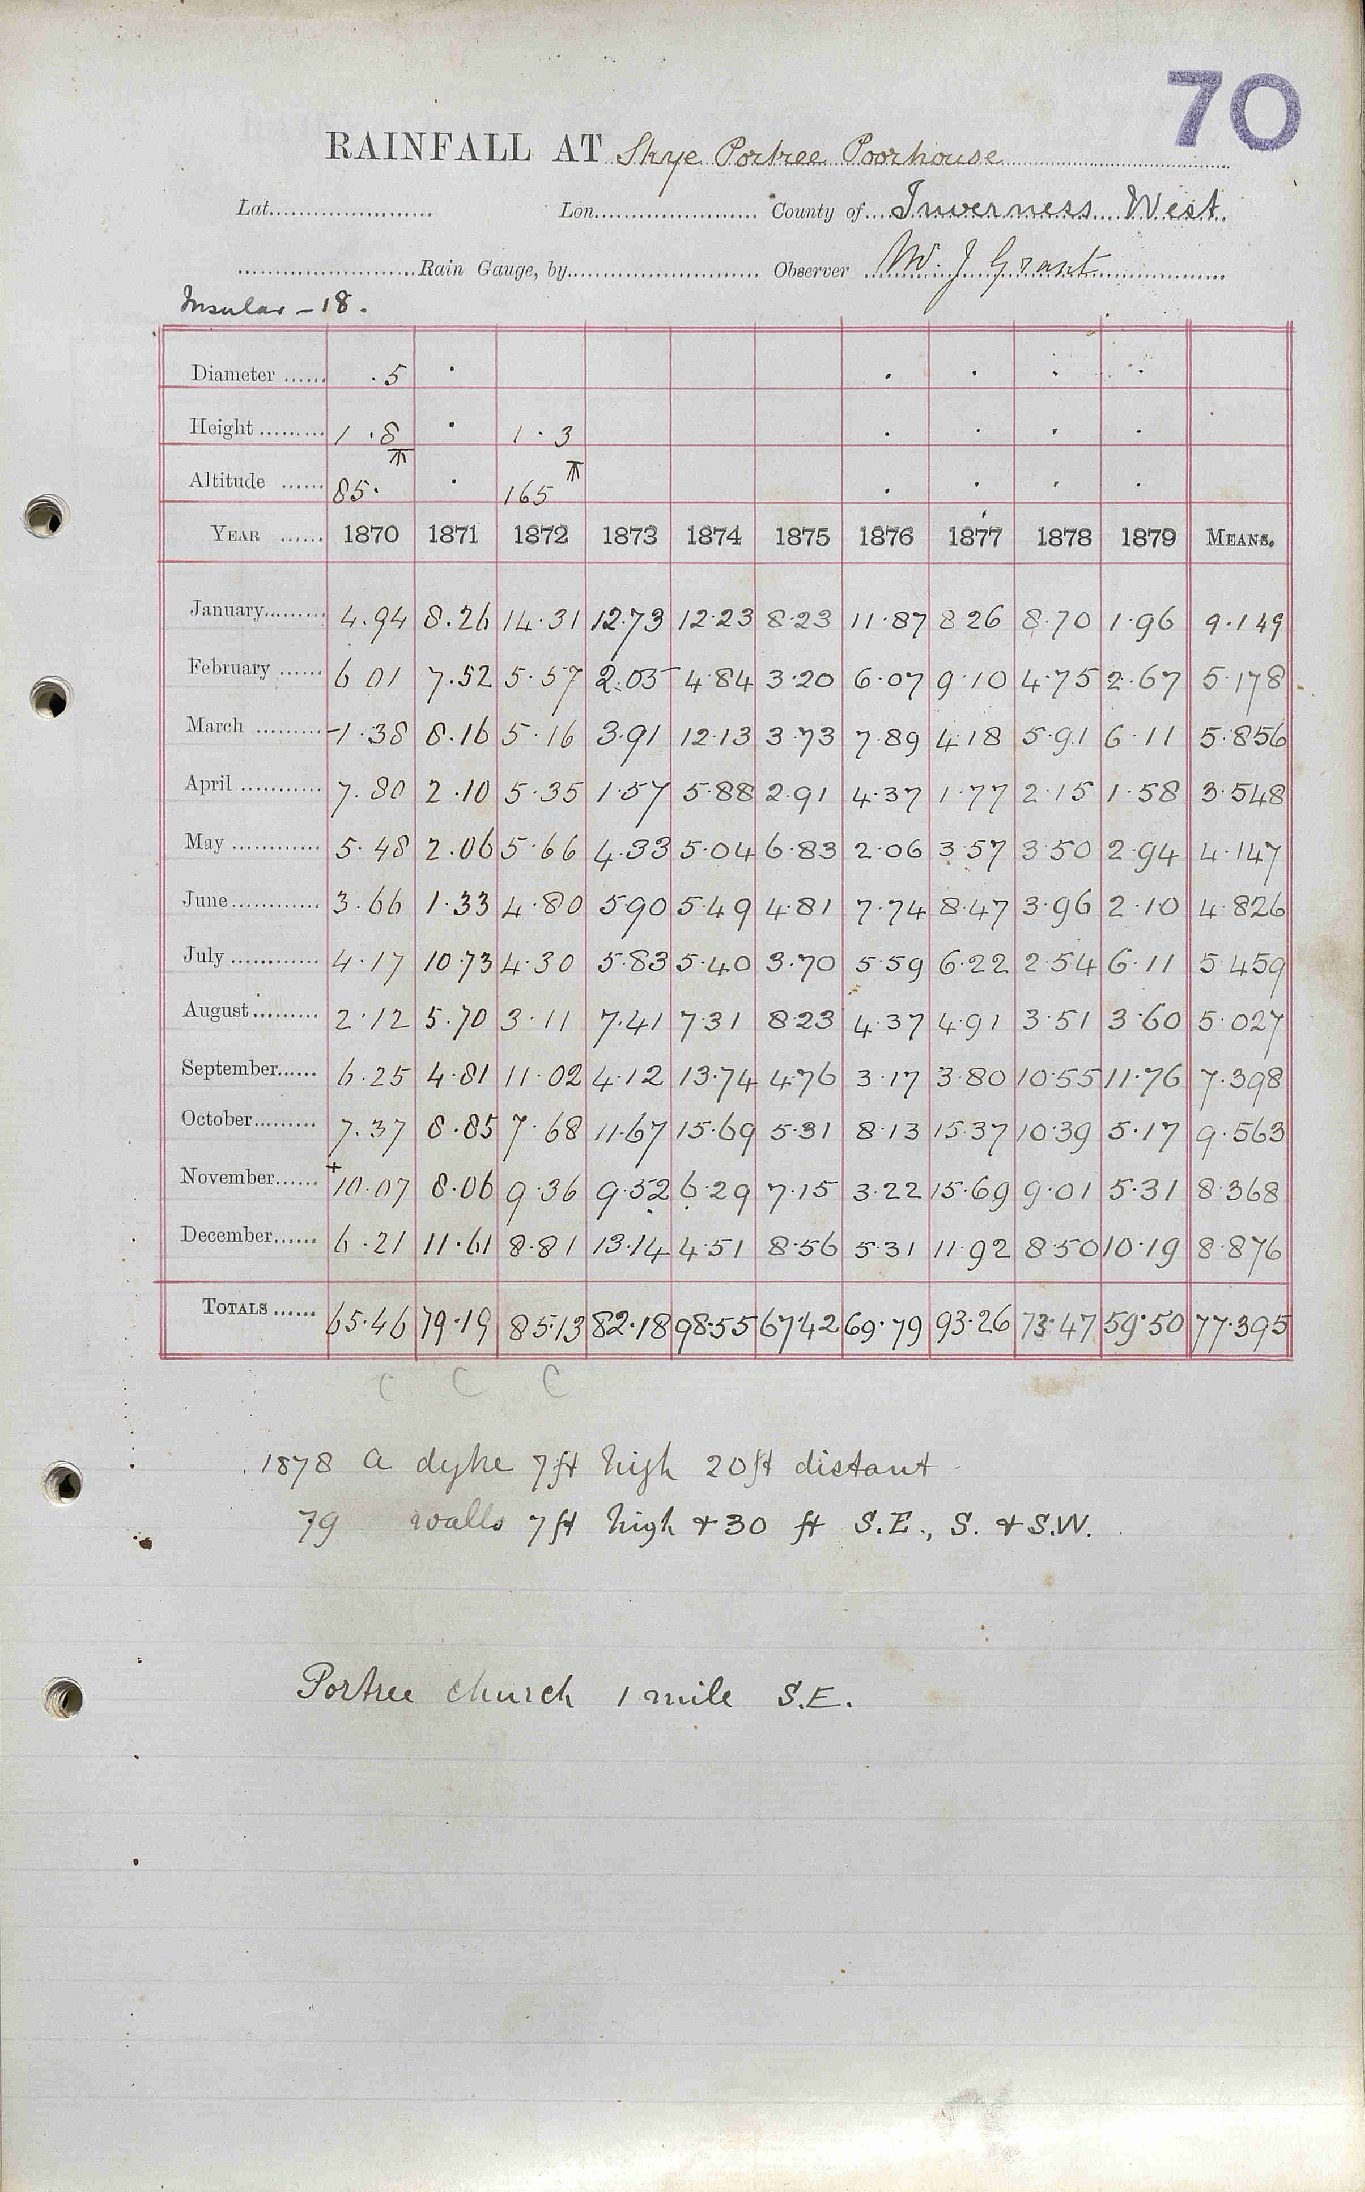 70
RAINFALL AT Skye Portree Poorhouse
Lat. Lon. County of Inverness West
Rain Gauge, by Observer W. J Grant
Insular - 18.
Diameter .5
Height 1.8 1.3
Altitude 85. 165
YEAR 1870 1871 1872 1873 1874 1875 1876 1877 1878 1879 MEANS.
January 4.94 8.26 14.31 12.73 12.23 8.23 11.87 8.26 8.70 1.96 9.149
February 6 01 7.52 5.57 2.05 4.84 3.20 6.07 9.10 4.75 2.67 5.178
March 1.38 8.16 5.16 3.91 12.13 3.73 7.89 4.18 5.91 6.11 5.856
April 7.80 2.10 5.35 1.57 5.88 2.91 4.37 1.77 2.15 1.58 3.548
May 5.48 2.06 5.66 4.33 5.04 6.83 2.06 3.57 3.50 2.94 4.147
June 3.66 1.33 4.80 5.90 5.49 4.81 7.74 8.47 3.96 2.10 4.826
July 4.17 10.73 4.30 5.83 5.40 3.70 5.59 6.22 2.54 6.11 5 459
August 2.12 5.70 3.11 7.41 7.31 8.23 4.37 4.91 3.51 3.60 5.027
September 6.25 4.81 11.02 4.12 13.74 4.76 3.17 3.80 10.55 11.76 7.398
October 7.37 8.85 7.68 11.67 15.69 5.31 8.13 15.37 10.39 5.17 9.563
November 10.07 8.06 9.36 9.52 6.29 7.15 3.22 15.69 9.01 5.31 8.368
December 6.21 11.61 8.81 13.14 4.51 8.56 5.31 11.92 8.50 10.19 8.876
TOTALS 65.46 79.19 85.13 82.18 98.55 67.42 69.79 93.26 73.47 59.50 77.395
C C C
1878 a dyke 7ft high 20ft distant
79 walls 7ft high + 30 ft S.E., S. + S.W.
Portree church 1 mile S.E.